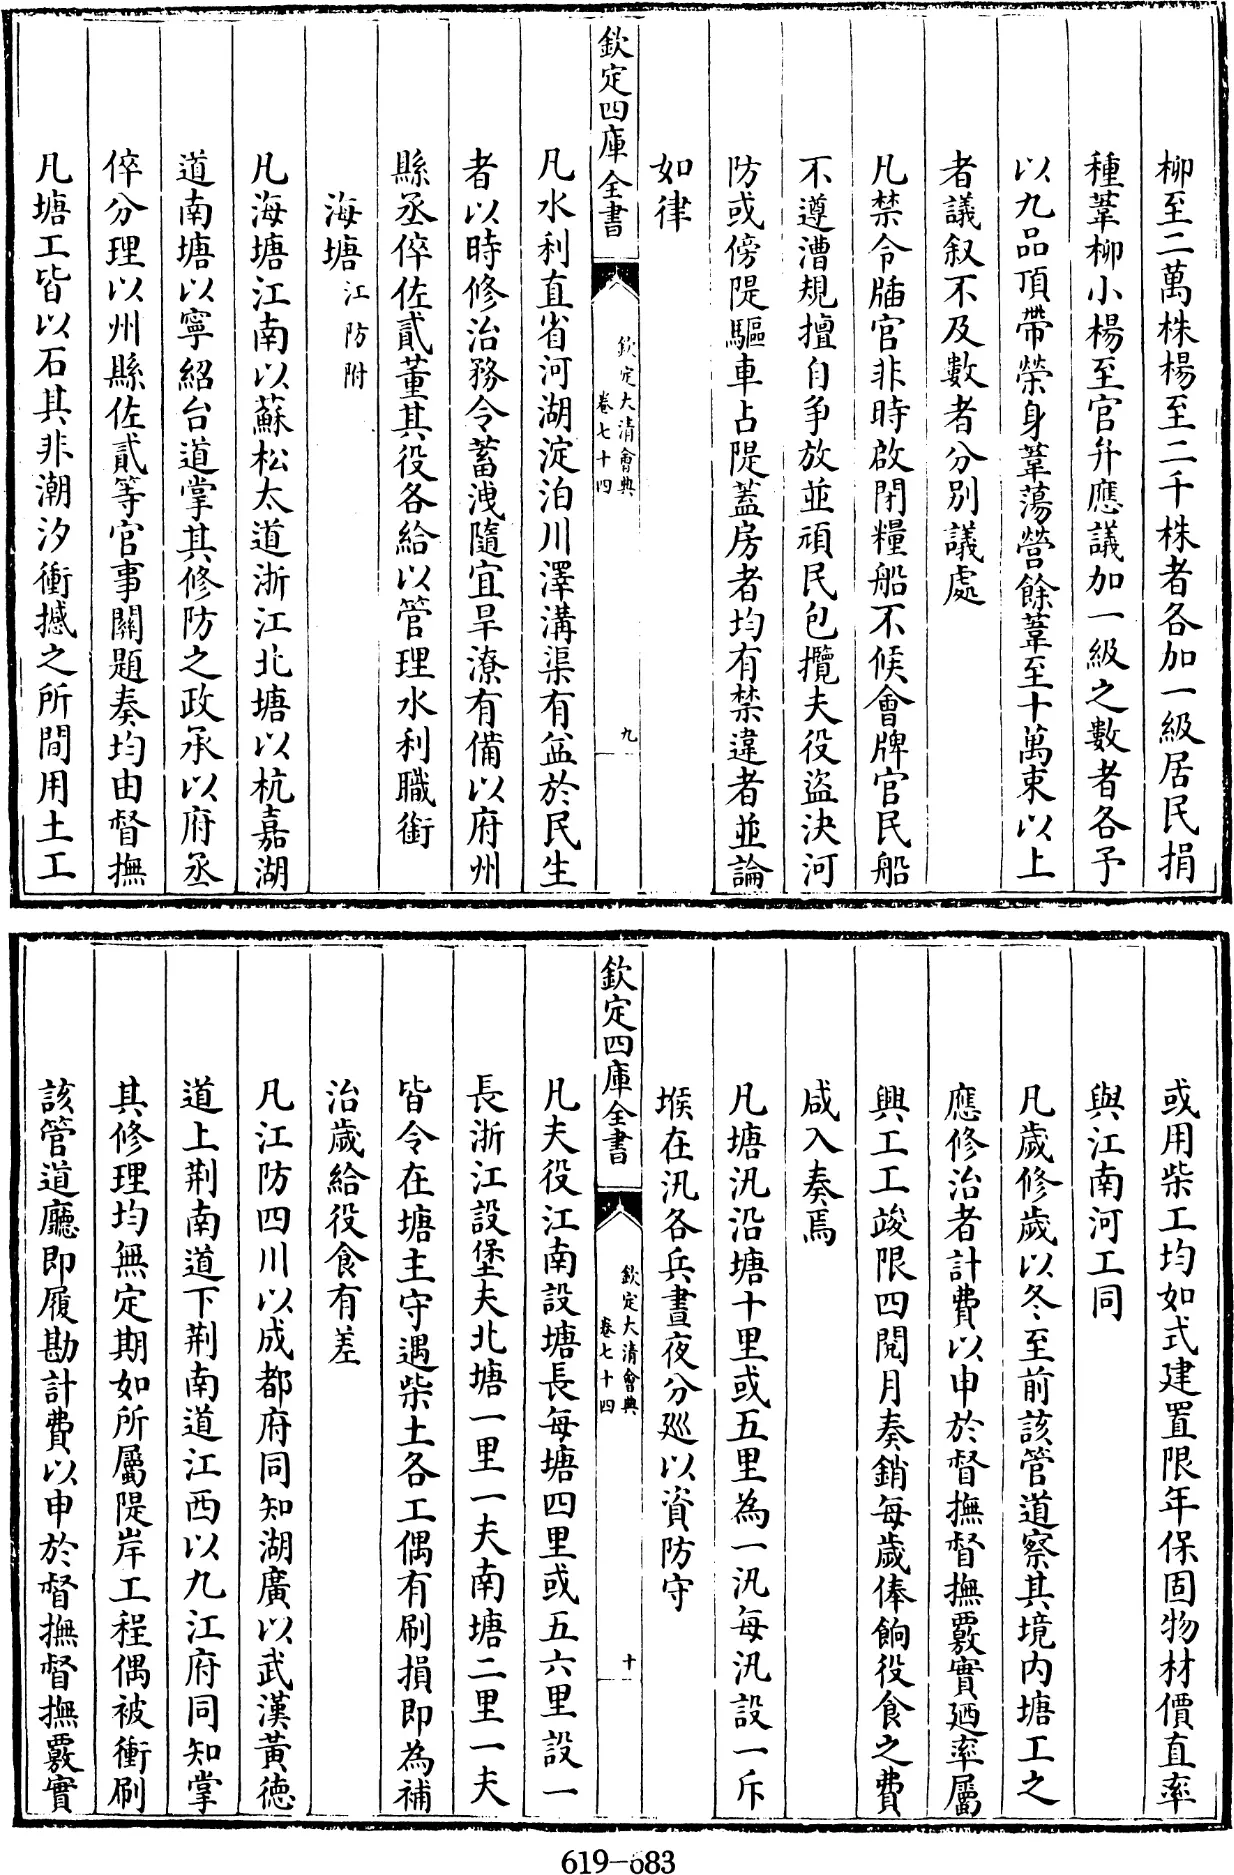 柳至二萬株楊至二千株者各加一級居民捐
種葦柳小楊至官弁應議加一級之數者各予
以九品頂帶榮身葦蕩營餘葦至十萬束以上
者議叙不及數者分別議處
凡禁令牐官非時啟閉糧船不候會牌官民船
不遵漕規擅自爭放並頑民包攬夫役盜決河
防或傍隄驅車占隄蓋房者均有禁違者並論
如律
欽定四庫全書
欽定大清會典
卷七十四
九
凡水利直省河湖淀泊川澤溝渠有益於民生
者以時修治務令蓄洩隨宜旱潦有備以府州
縣丞倅佐貳董其役各給以管理水利職銜
海塘江防附
凡海塘江南以蘇松太道浙江北塘以杭嘉湖
道南塘以寧紹台道掌其修防之政承以府丞
倅分理以州縣佐貳等官事關題奏均由督撫
凡塘工皆以石其非潮汐衝撼之所間用土工
或用柴工均如式建置限年保固物材價直率
與江南河工同
凡歲修歲以冬至前該管道察其境内塘工之
應修治者計費以申於督撫督撫覈實廼率屬
興工工竣限四閱月奏銷每歲俸餉役食之費
咸入奏焉
凡塘汛沿塘十里或五里為一汛每汛設一斥
堠在汛各兵晝夜分廵以資防守
欽定四庫全書
欽定大清會典
卷七十四
十
凡夫役江南設塘長每塘四里或五六里設一
長浙江設堡夫北塘一里一夫南塘二里一夫
皆令在塘主守遇柴土各工偶有刷損即為補
治歲給役食有差
凡江防四川以成都府同知湖廣以武漢黃徳
道上荆南道下荆南道江西以九江府同知掌
其修理均無定期如所屬隄岸工程偶被衝刷
該管道廳即履勘計費以申於督撫督撫覈實
619-683